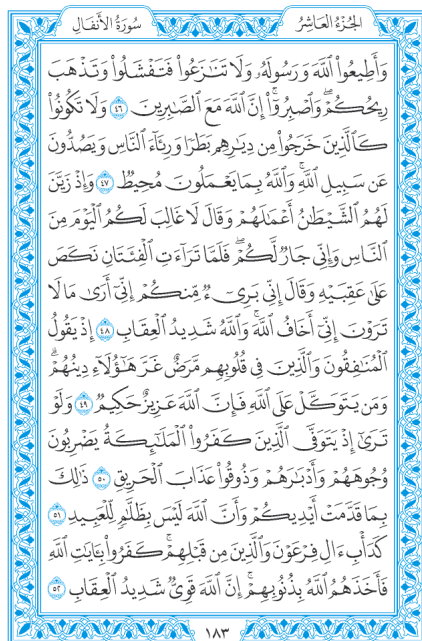 الجُزْءُ العَاشِرُ سُورَةُ الأَنفَالِ
وَأَطِيعُوا۟ ٱللَّهَ وَرَسُولَهُۥ وَلَا تَنَٰزَعُوا۟ فَتَفْشَلُوا۟ وَتَذْهَبَ
رِيحُكُمْ ۖ وَٱصْبِرُوٓا۟ ۚ إِنَّ ٱللَّهَ مَعَ ٱلصَّٰبِرِينَ ٤٦ وَلَا تَكُونُوا۟
كَٱلَّذِينَ خَرَجُوا۟ مِن دِيَٰرِهِم بَطَرًا وَرِئَآءَ ٱلنَّاسِ وَيَصُدُّونَ
عَن سَبِيلِ ٱللَّهِ ۚ وَٱللَّهُ بِمَا يَعْمَلُونَ مُحِيطٌ ٤٧ وَإِذْ زَيَّنَ
لَهُمُ ٱلشَّيْطَٰنُ أَعْمَٰلَهُمْ وَقَالَ لَا غَالِبَ لَكُمُ ٱلْيَوْمَ مِنَ
ٱلنَّاسِ وَإِنِّى جَارٌ لَّكُمْ ۖ فَلَمَّا تَرَآءَتِ ٱلْفِئَتَانِ نَكَصَ
عَلَىٰ عَقِبَيْهِ وَقَالَ إِنِّى بَرِىٓءٌ مِّنكُمْ إِنِّىٓ أَرَىٰ مَا لَا
تَرَوْنَ إِنِّىٓ أَخَافُ ٱللَّهَ ۚ وَٱللَّهُ شَدِيدُ ٱلْعِقَابِ ٤٨ إِذْ يَقُولُ
ٱلْمُنَٰفِقُونَ وَٱلَّذِينَ فِى قُلُوبِهِم مَّرَضٌ غَرَّ هَٰٓؤُلَآءِ دِينُهُمْ ۗ
وَمَن يَتَوَكَّلْ عَلَى ٱللَّهِ فَإِنَّ ٱللَّهَ عَزِيزٌ حَكِيمٌ ٤٩ وَلَوْ
تَرَىٰٓ إِذْ يَتَوَفَّى ٱلَّذِينَ كَفَرُوا۟ ۙ ٱلْمَلَٰٓئِكَةُ يَضْرِبُونَ
وُجُوهَهُمْ وَأَدْبَٰرَهُمْ وَذُوقُوا۟ عَذَابَ ٱلْحَرِيقِ ٥٠ ذَٰلِكَ
بِمَا قَدَّمَتْ أَيْدِيكُمْ وَأَنَّ ٱللَّهَ لَيْسَ بِظَلَّٰمٍ لِّلْعَبِيدِ ٥١
كَدَأْبِ ءَالِ فِرْعَوْنَ ۙ وَٱلَّذِينَ مِن قَبْلِهِمْ ۚ كَفَرُوا۟ بِـَٔايَٰتِ ٱللَّهِ
فَأَخَذَهُمُ ٱللَّهُ بِذُنُوبِهِمْ ۗ إِنَّ ٱللَّهَ قَوِىٌّ شَدِيدُ ٱلْعِقَابِ ٥٢
١٨٣